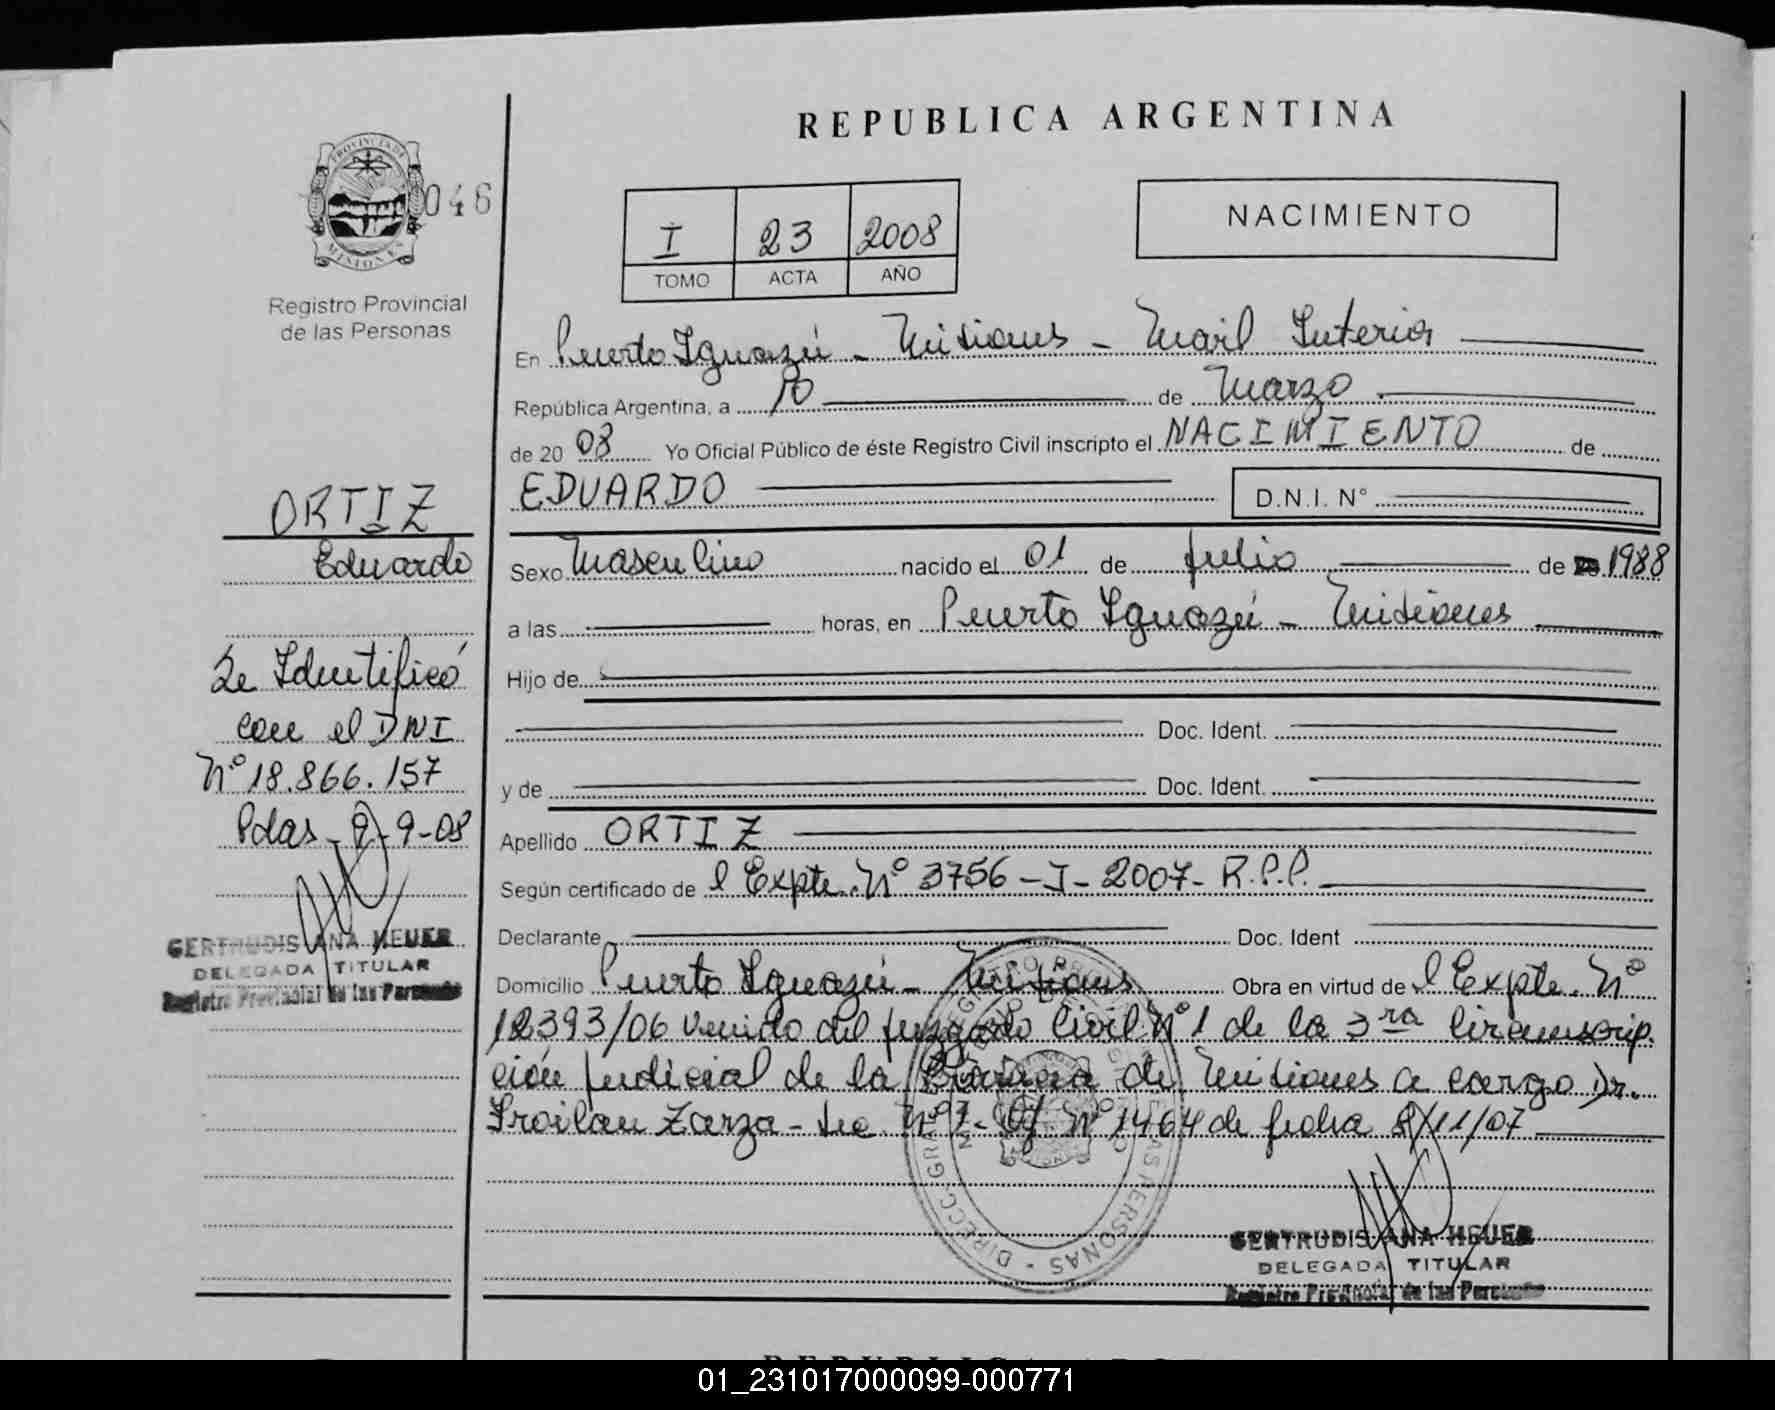 REPUBLICA ARGENTINA
PROVINCIA DE
MISIONES
046
Registro Provincial
de las Personas
I 23 2008
TOMO ACTA AÑO
NACIMIENTO
En Puerto Iguazú - Misiones - Interior
República Argentina, a 10 de Marzo
de 2008 Yo Oficial Público de éste Registro Civil inscripto el NACIMIENTO de
EDUARDO D.N.I. N°
ORTIZ
Eduardo
Sexo Masculino nacido el 01 de Julio de 1988
a las horas, en Puerto Iguazú - Misiones
Hijo de
Doc. Ident.
y de Doc. Ident.
Se Identificó
con el DNI
N° 18.866.157
Pdas - 9-9-08
GERTRUDIS ANA HEUER
DELEGADA TITULAR
Registro Provincial de las Personas
Apellido ORTIZ
Según certificado de l Expte. N° 3756-I-2007- R.P.P.
Declarante Doc. Ident
Domicilio Puerto Iguazú - Misiones Obra en virtud de l Expte. N°
12393/06 venido del Juzgado Civil N° 1 de la 3ra Circunscrip.
ción Judicial de la Provincia de Misiones a cargo Dr.
Froilan Zarza - Sec. N° - Of. N° 1464 de fecha 8/11/07
GERTRUDIS ANA HEUER
DELEGADA TITULAR
Registro Provincial de las Personas
01_231017000099-000771